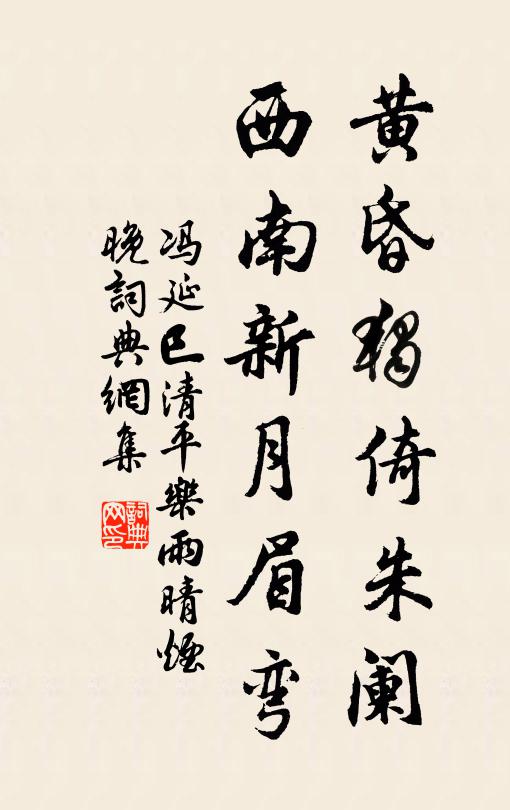 黄昏獨倚朱阑
西南新月眉弯
冯延巳清平樂雨晴煙
晚詞典網集
詞典网印